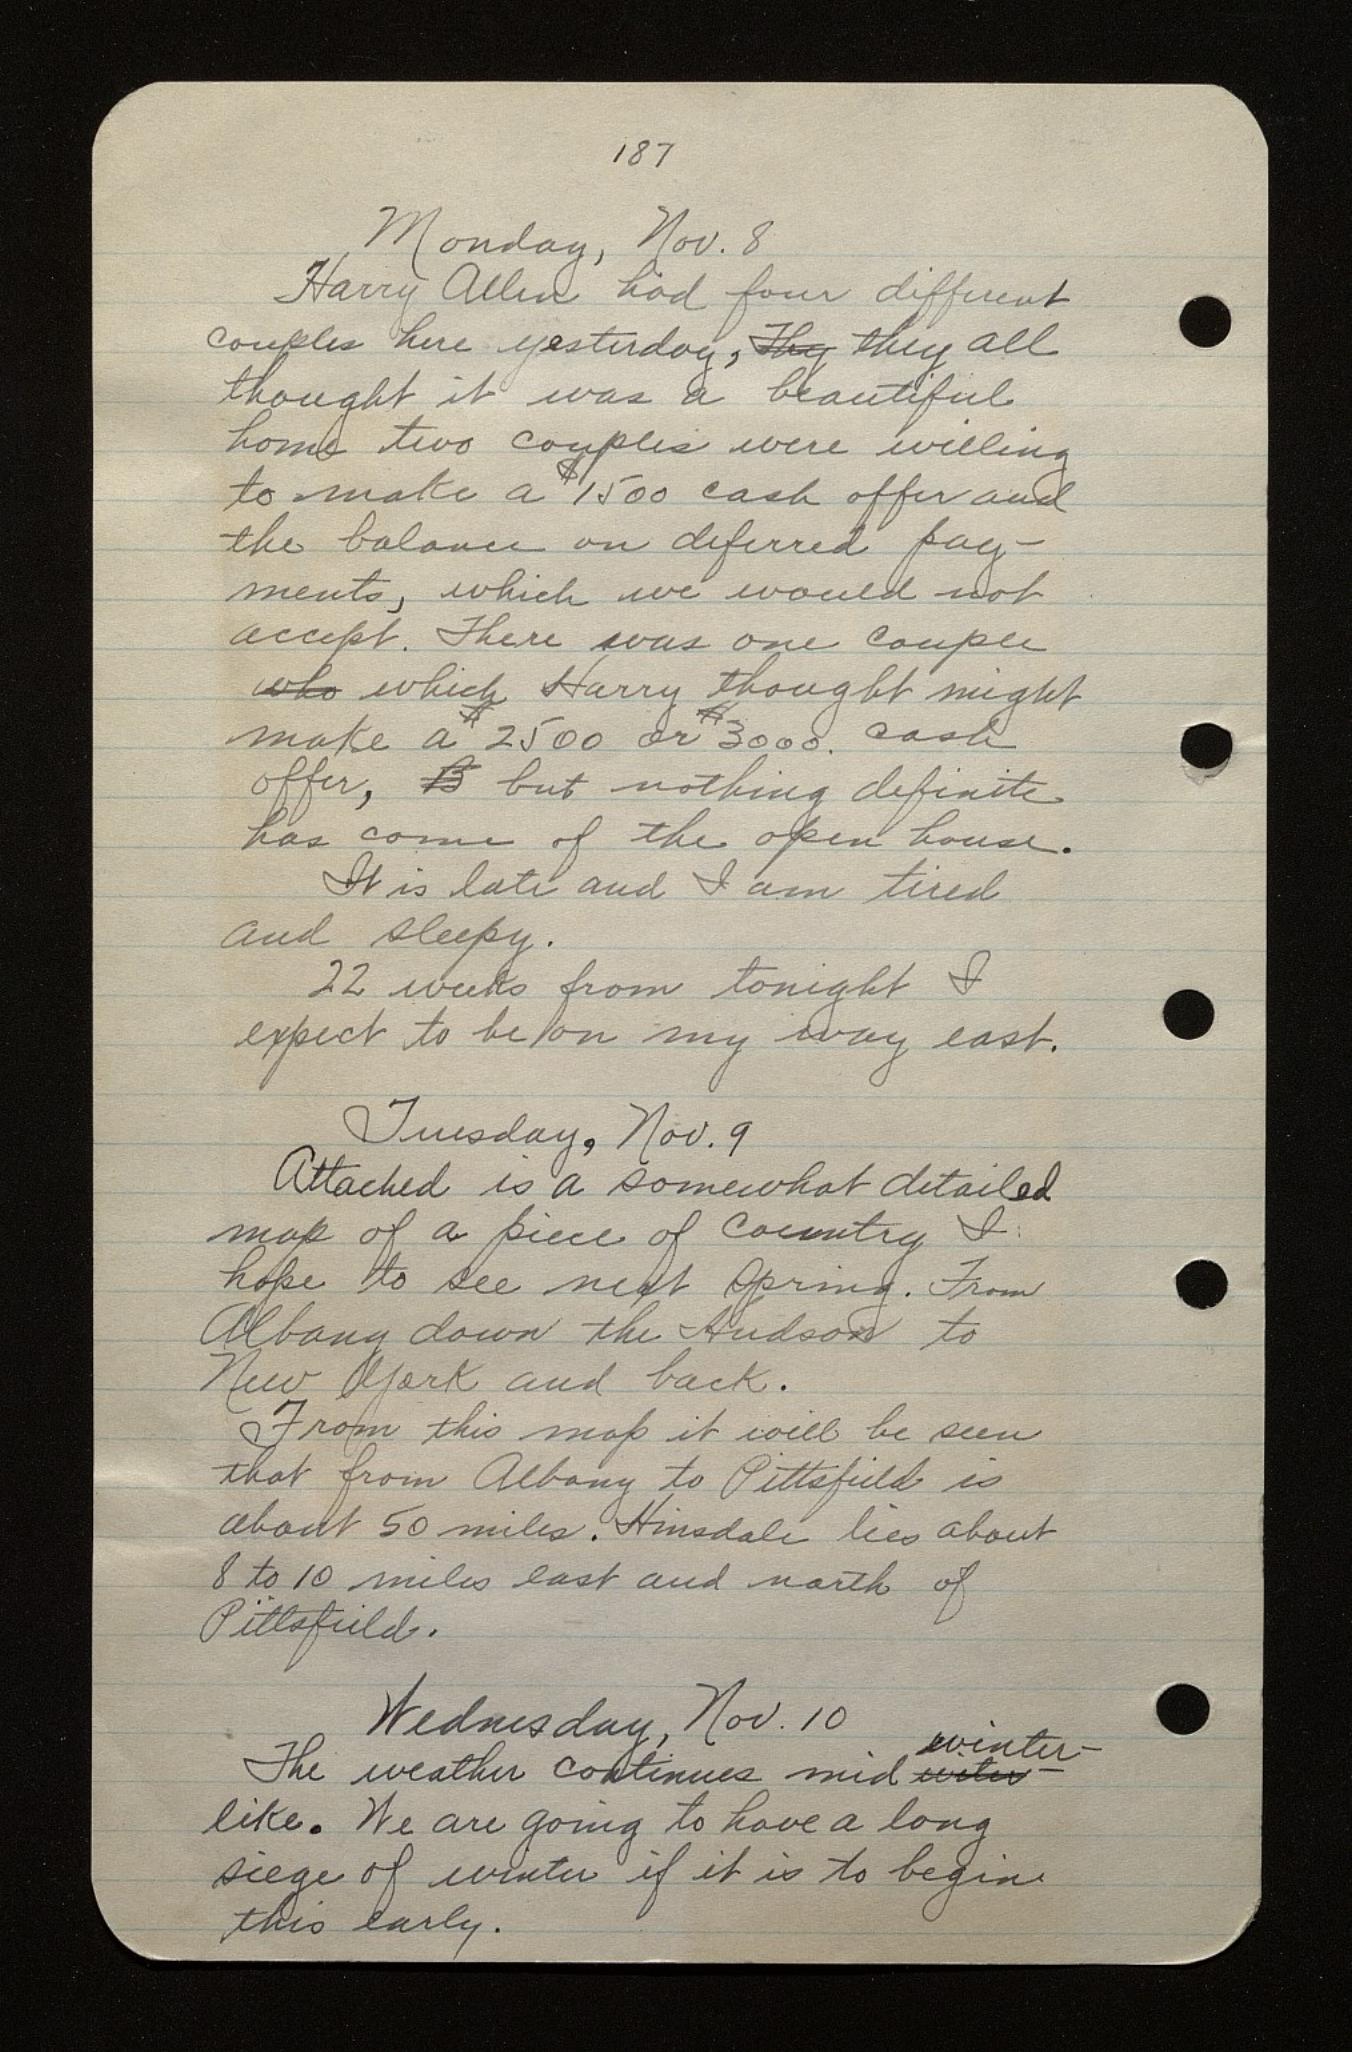 187
Monday, Nov. 8
Harry Allen had four different
couples here yesterday, They they all
thought it was a beautiful
home two couples were willing
to make a $1500 cash offer and
the balance on deferred pay-
ments, which we would not
accept. There was one couple
who which Harry thought might
make a $2500 or $3000. cash
offer, B but nothing definite
has come of the open house.
It is late and I am tired
and sleepy.
22 weeks from tonight I
expect to be on my way east.
Tuesday, Nov. 9
Attached is a somewhat detailed
map of a piece of country I
hope to see next Spring. From
Albany down the Hudson to
New York and back.
From this map it will be seen
that from Albany to Pittsfield is
about 50 miles. Hinsdale lies about
8 to 10 miles east and north of
Pittsfield.
Wednesday, Nov. 10
winter-
The weather continues mid witer-
like. We are going to have a long
siege of winter if it is to begin
this early.